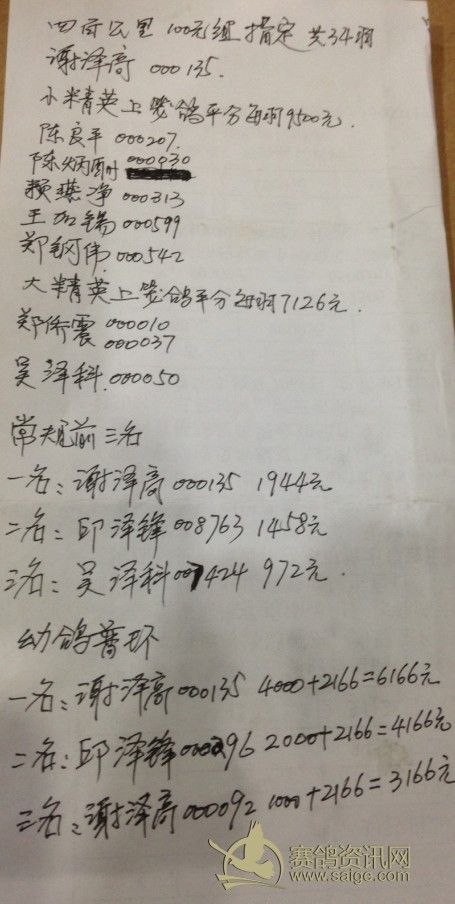 四百公里 100元组 指定 共34羽
谢泽高 000135.
小精英上笼鸽平分每羽9500元.
陈良平 000207.
陈炳 000930
赖燕净 000313
王加锡 000599
郑钢伟.000542
大精英上笼鸽平分每羽7126元.
郑侨震 000010
000037
吴泽科.000050
常规前三名
一名:谢泽高000135 1944元
二名:邱泽锋008763 1458元
三名:吴泽科007424 972元.
幼鸽普环
一名:谢泽高000135 4000+2166=6166元
二名:邱泽锋 2000+2166=4166元
三名:谢泽高000092 1000+2166=3166元
赛鸽资讯网
www.saige.com